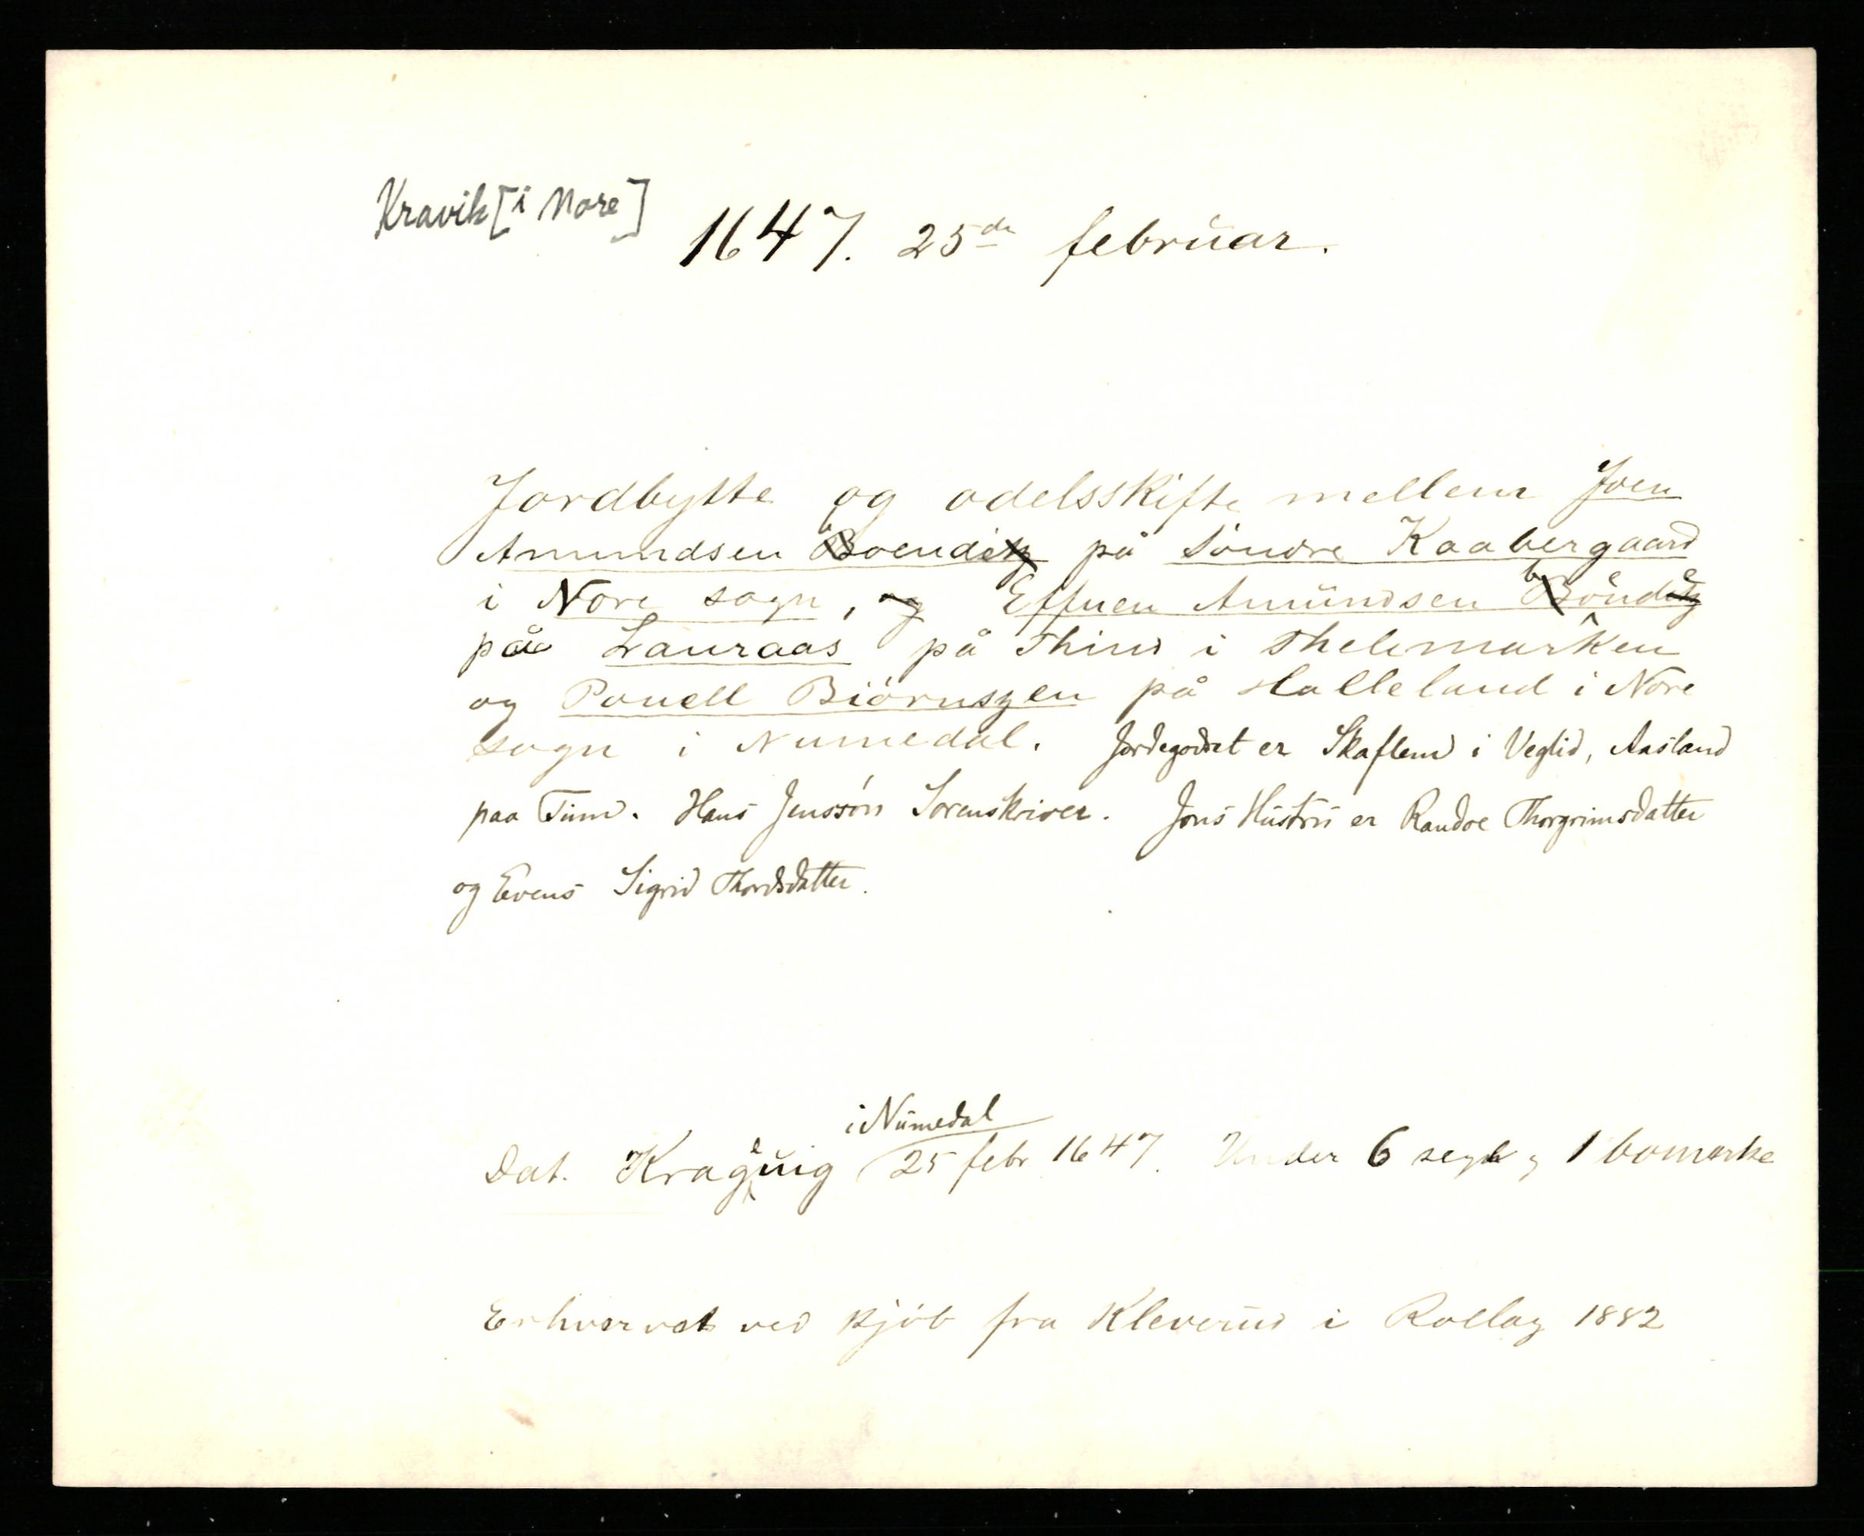 Kravik [i Nore]
1647. 25de februar.
Jordbytte og odelsskifte mellem Joen
Amundsen boende på Söndre Kaabergaard
i Nore sogn, Effuen Amundsen bönde
paa Lauraas på Thind i Thelemarken
og Pouell Biörnszen på Halleland i Nore
sogn i Numedal. Jordegodset er Skaflem i Veglid, Aasland
paa Tinn. Hans Jenssön Sorenskriver. Jons Hustru er Randoe Thorgrimsdatter
og Evens Sigrid Thordsdatter.
i Numedal
Dat. Krageuig 25 febr 1647. Under 6 segl og 1 bomerke
Erhvervet ved kjöb fra Kleverud i Rollag 1882